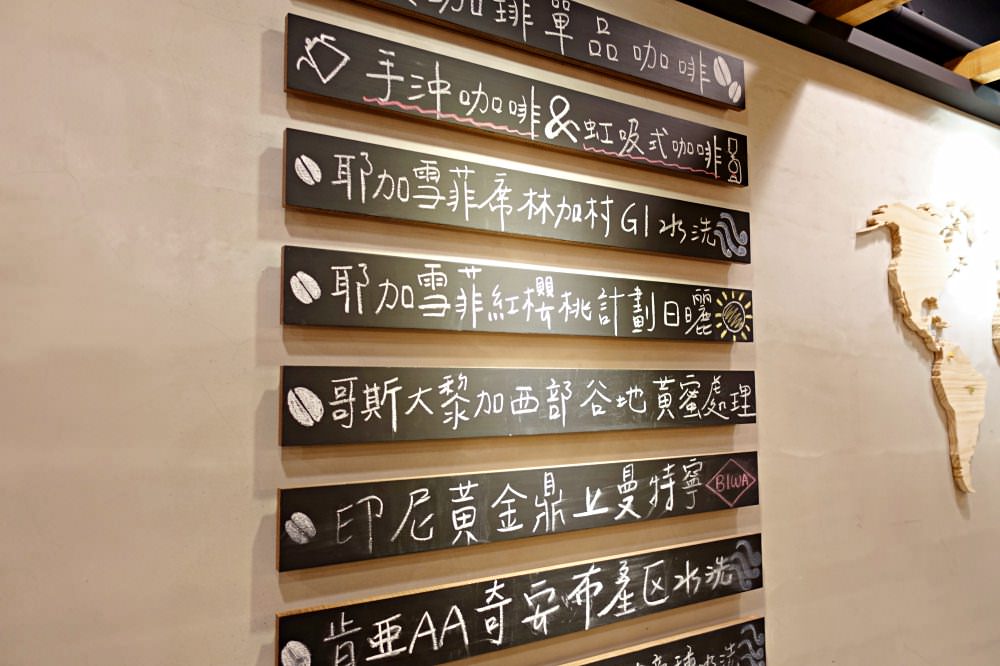 咖啡單品咖啡
手沖咖啡&虹吸式咖啡
耶加雪菲席林加村G1水洗
耶加雪菲紅櫻桃計劃日曬
哥斯大黎加西部谷地黃蜜處理
印尼黃金鼎上曼特寧 BIWA
肯亞AA奇安布產区水洗
水洗